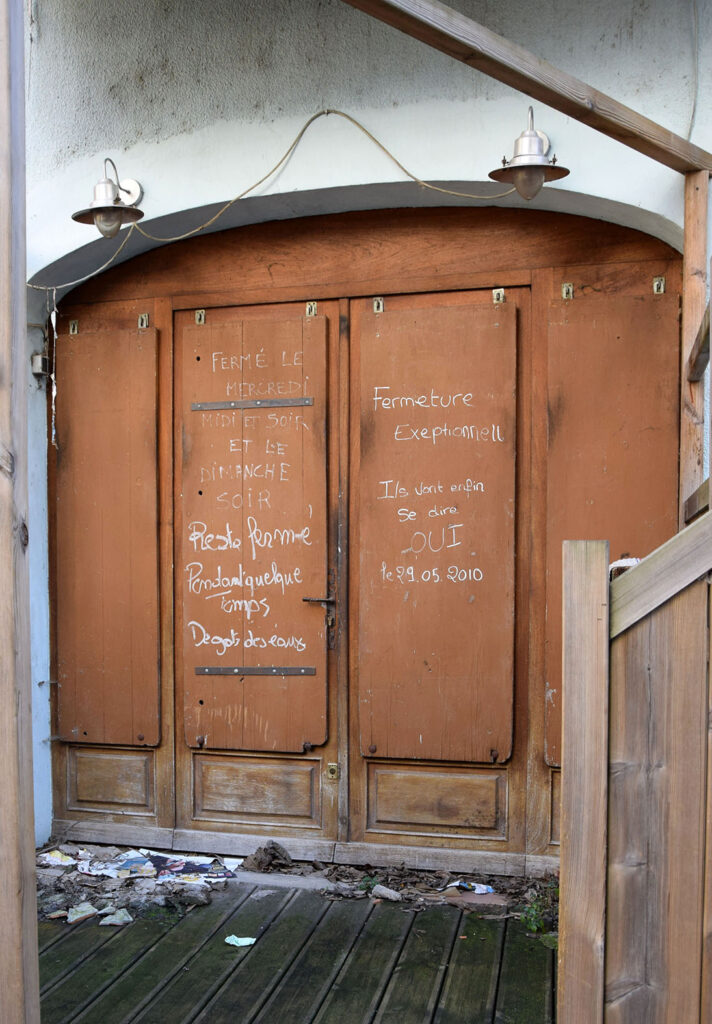 FERMÉ LE
MERCREDI
MIDI ET SOIR
ET LE
DIMANCHE
SOIR
Reste fermé
Pendant quelque
Temps
Degats des eaux
Fermeture
Exeptionnell
Ils vont enfin
Se dire
OUI
le 29.05.2010